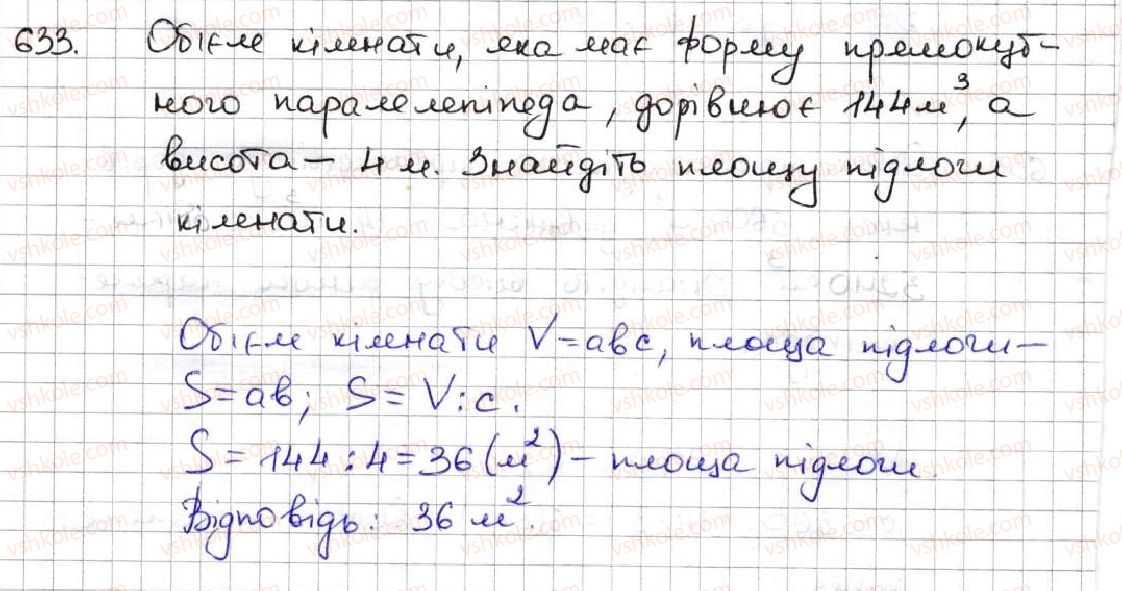 633. Об'єм кімнати, яка має форму прямокут-
ного паралелепіпеда, дорівнює 144 м³, а
висота – 4 м. Знайдіть площу підлоги
кімнати.
Об'єм кімнати V=abc, площа підлоги –
S=ab; S= V:c.
S= 144:4=36(м²) – площа підлоги.
Відповідь: 36 м².